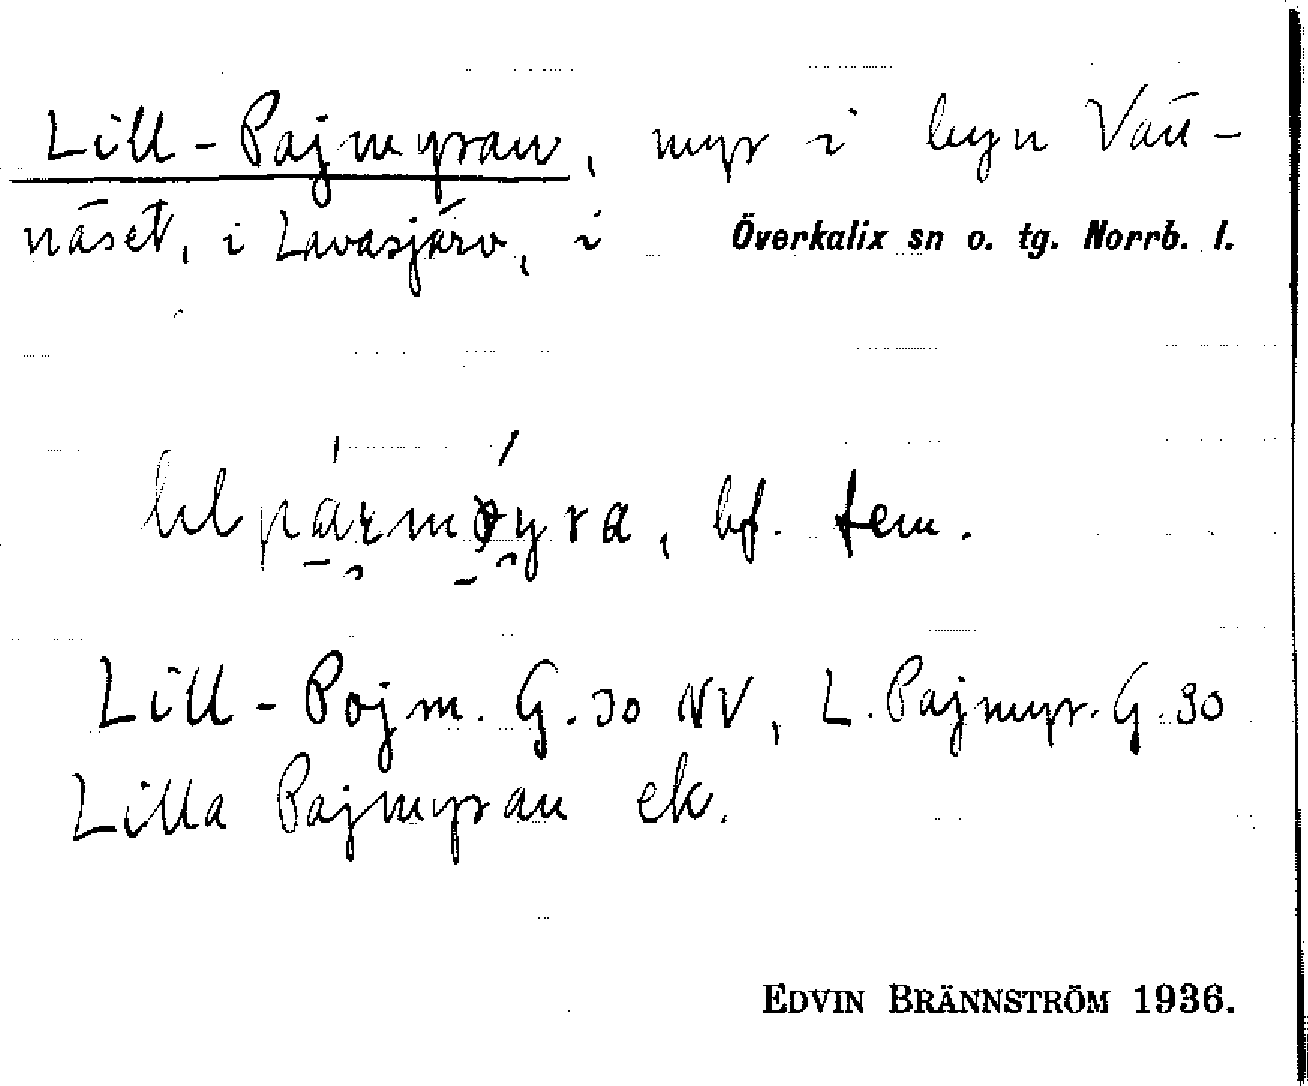 Lill-Pajmyran, myr i byn Vätt-
näset, i Lavasjärv, i Överkalix sn o. tg. Norrb. l.
bf. fem.
Lill-Pojm. G. 30 NV, L. Pajmyr. G. 30
Lilla Pajmyran ek.
EDVIN BRÄNNSTRÖM 1936.